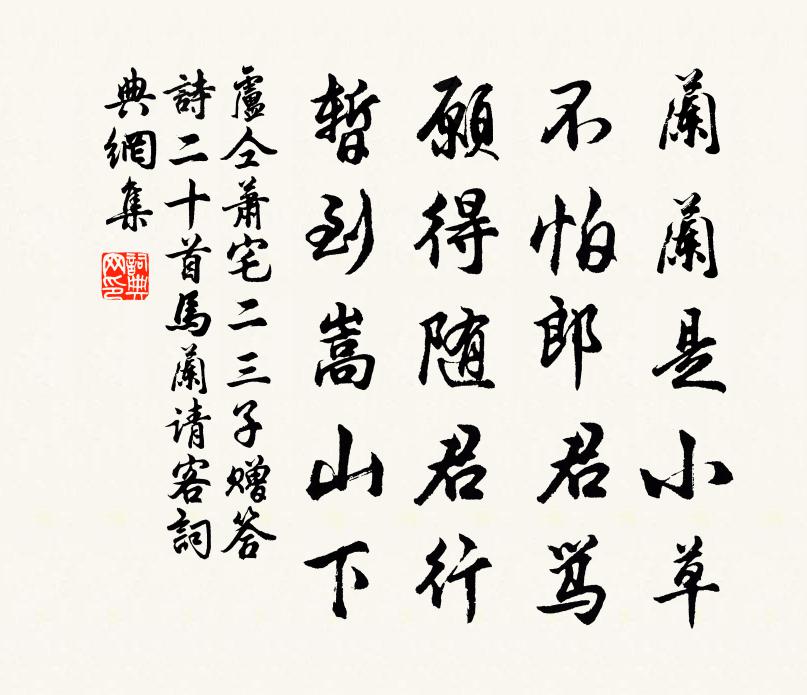 蘭蘭是小草
不怕郎君骂
願得随君行
暫到嵩山下
盧仝萧宅二三子贈答
詩二十首馬蘭请客詞
典網集
詞典网印